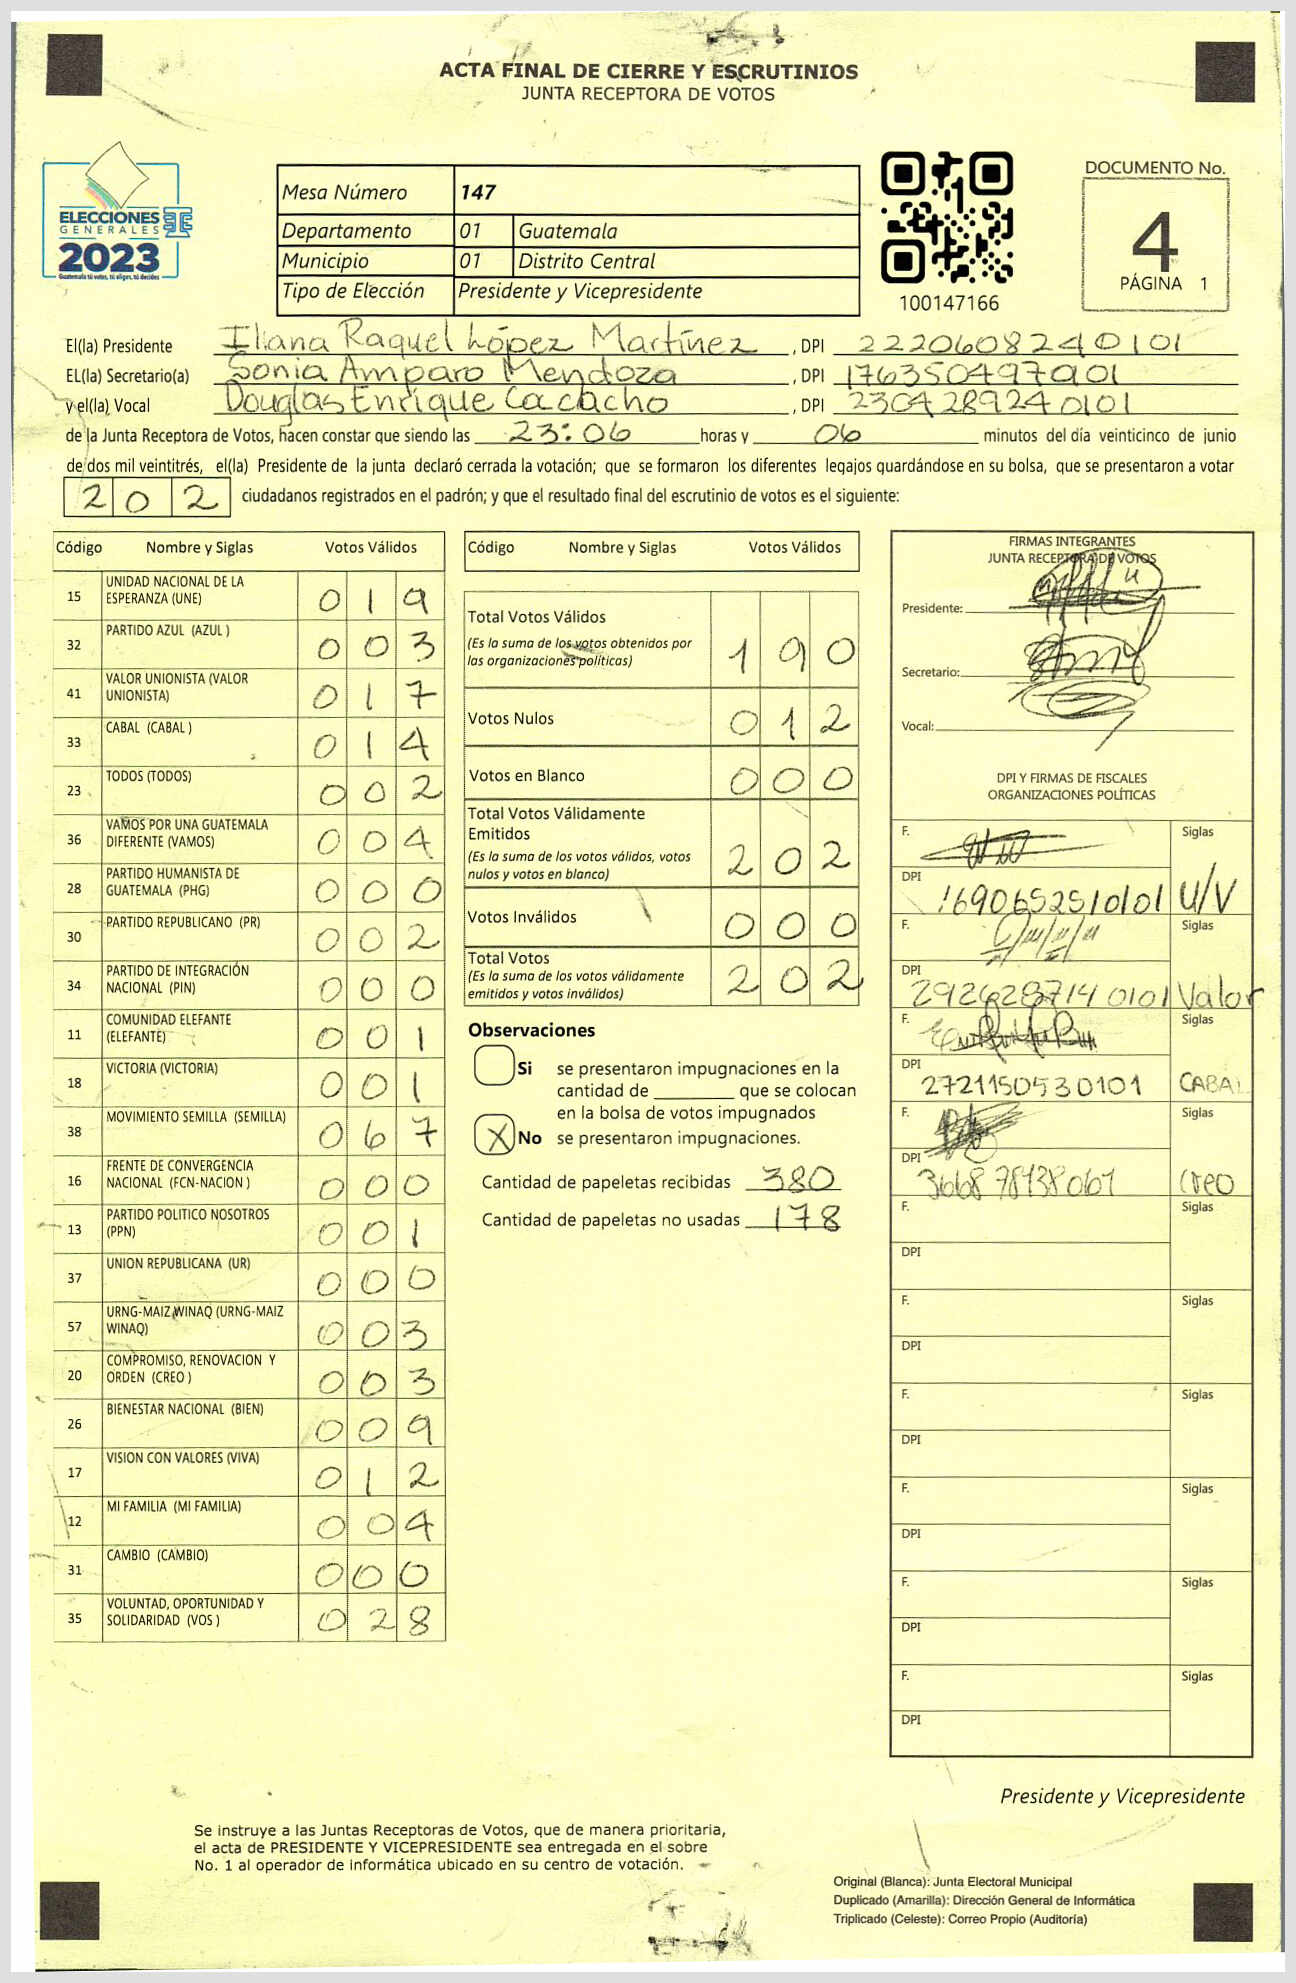 ACTA FINAL DE CIERRE Y ESCRUTINIOS
JUNTA RECEPTORA DE VOTOS
ELECCIONES
GENERALES
2023
Guatemala tú votas, tú eliges, tú decides
Mesa Número 147
Departamento 01 Guatemala
Municipio 01 Distrito Central
Tipo de Elección Presidente y Vicepresidente
100147166
DOCUMENTO No.
4
PÁGINA 1
El(la) Presidente Iliana Raquel López Martínez , DPI 2220608240101
EL(la) Secretario(a) Sonia Amparo Mendoza , DPI 1763504970101
y el(la) Vocal Douglas Enrique Cacacho , DPI 2304289240101
de la Junta Receptora de Votos, hacen constar que siendo las 23:06 horas y 06 minutos del día veinticinco de junio
de dos mil veintitrés, el(la) Presidente de la junta declaró cerrada la votación; que se formaron los diferentes legajos guardándose en su bolsa, que se presentaron a votar
202 ciudadanos registrados en el padrón; y que el resultado final del escrutinio de votos es el siguiente:
Código Nombre y Siglas Votos Válidos
15 UNIDAD NACIONAL DE LA
ESPERANZA (UNE) 019
32 PARTIDO AZUL (AZUL ) 003
41 VALOR UNIONISTA (VALOR
UNIONISTA) 017
33 CABAL (CABAL ) 014
23 TODOS (TODOS) 002
36 VAMOS POR UNA GUATEMALA
DIFERENTE (VAMOS) 004
28 PARTIDO HUMANISTA DE
GUATEMALA (PHG) 000
30 PARTIDO REPUBLICANO (PR) 002
34 PARTIDO DE INTEGRACIÓN
NACIONAL (PIN) 000
11 COMUNIDAD ELEFANTE
(ELEFANTE) 001
18 VICTORIA (VICTORIA) 001
38 MOVIMIENTO SEMILLA (SEMILLA) 067
16 FRENTE DE CONVERGENCIA
NACIONAL (FCN-NACION ) 000
13 PARTIDO POLITICO NOSOTROS
(PPN) 001
37 UNION REPUBLICANA (UR) 000
57 URNG-MAIZ WINAQ (URNG-MAIZ
WINAQ) 003
20 COMPROMISO, RENOVACION Y
ORDEN (CREO ) 003
26 BIENESTAR NACIONAL (BIEN) 009
17 VISION CON VALORES (VIVA) 012
12 MI FAMILIA (MI FAMILIA) 004
31 CAMBIO (CAMBIO) 000
35 VOLUNTAD, OPORTUNIDAD Y
SOLIDARIDAD (VOS ) 028
Código Nombre y Siglas Votos Válidos
Total Votos Válidos
(Es la suma de los votos obtenidos por
las organizaciones políticas) 190
Votos Nulos 012
Votos en Blanco 000
Total Votos Válidamente
Emitidos
(Es la suma de los votos válidos, votos
nulos y votos en blanco) 202
Votos Inválidos 000
Total Votos
(Es la suma de los votos válidamente
emitidos y votos inválidos) 202
Observaciones
Si se presentaron impugnaciones en la
cantidad de ________ que se colocan
en la bolsa de votos impugnados
X No se presentaron impugnaciones.
Cantidad de papeletas recibidas 380
Cantidad de papeletas no usadas 178
FIRMAS INTEGRANTES
JUNTA RECEPTORA DE VOTOS
Presidente:
Secretario:
Vocal:
DPI Y FIRMAS DE FISCALES
ORGANIZACIONES POLÍTICAS
F. Siglas
DPI 1690652510101 U/V
F. Siglas
DPI 2926287140101 Valor
F. Siglas
DPI 2721150530101 CABAL
F. Siglas
DPI Creo
F. Siglas
DPI
F. Siglas
DPI
F. Siglas
DPI
F. Siglas
DPI
F. Siglas
DPI
F. Siglas
DPI
Presidente y Vicepresidente
Se instruye a las Juntas Receptoras de Votos, que de manera prioritaria,
el acta de PRESIDENTE Y VICEPRESIDENTE sea entregada en el sobre
No. 1 al operador de informática ubicado en su centro de votación.
Original (Blanca): Junta Electoral Municipal
Duplicado (Amarilla): Dirección General de Informática
Triplicado (Celeste): Correo Propio (Auditoría)